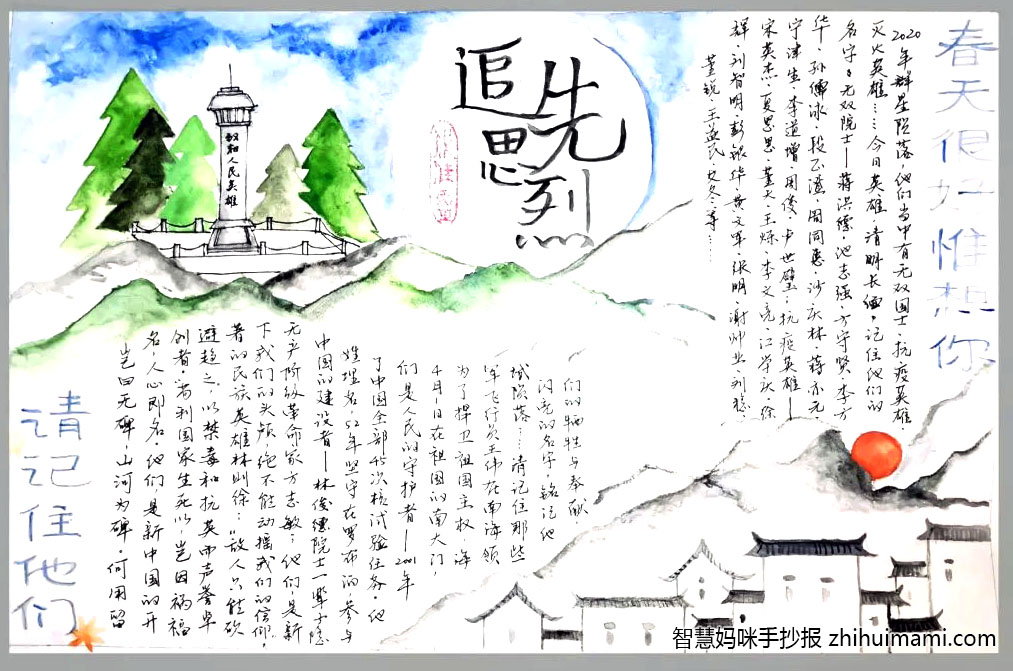 春天很好惟想你
2020年群星陨落,他们当中有无双国士、抗疫英雄、
灭火英雄……今日英雄清明长缅,记住他们的
名字:无双院士——蒋洪德、池志强、方守贤、李方
华、孙儒泳、段正澄、周同惠、沙庆林、蒋亦元、
宁津生、李道增、周俊、卢世璧;抗疫英雄——
宋英杰、夏思思、董天、王烁、李文亮、江学庆、徐
辉、刘智明、彭银华、黄文军、张明、谢帅业、刘
董锐、王益民、史冬等……
追思
先烈
致敬人民英雄
请记住他们
岂曰无碑,山河为碑,何用留
名,人心即名,他们是新中国的开
创者,苟利国家生死以岂因祸福
避趋之,以禁毒和抗英而声誉卓
著的民族英雄林则徐;“敌人只能砍
下我们的头颅,绝不能动摇我们的信仰,
无产阶级革命家方志敏;他们是新
中国的建设者——林俊德院士一辈子隐
姓埋名,52年坚守在罗布泊,参与
了中国全部45次核试验任务,他
们是人民的守护者——2001年
4月1日在祖国的南大门,
为了捍卫祖国主权,海
军飞行员王伟在南海领
域陨落……请记住那些
闪亮的名字,铭记他
们的牺牲与奉献,
智慧妈咪手抄报 zhihuimami.com